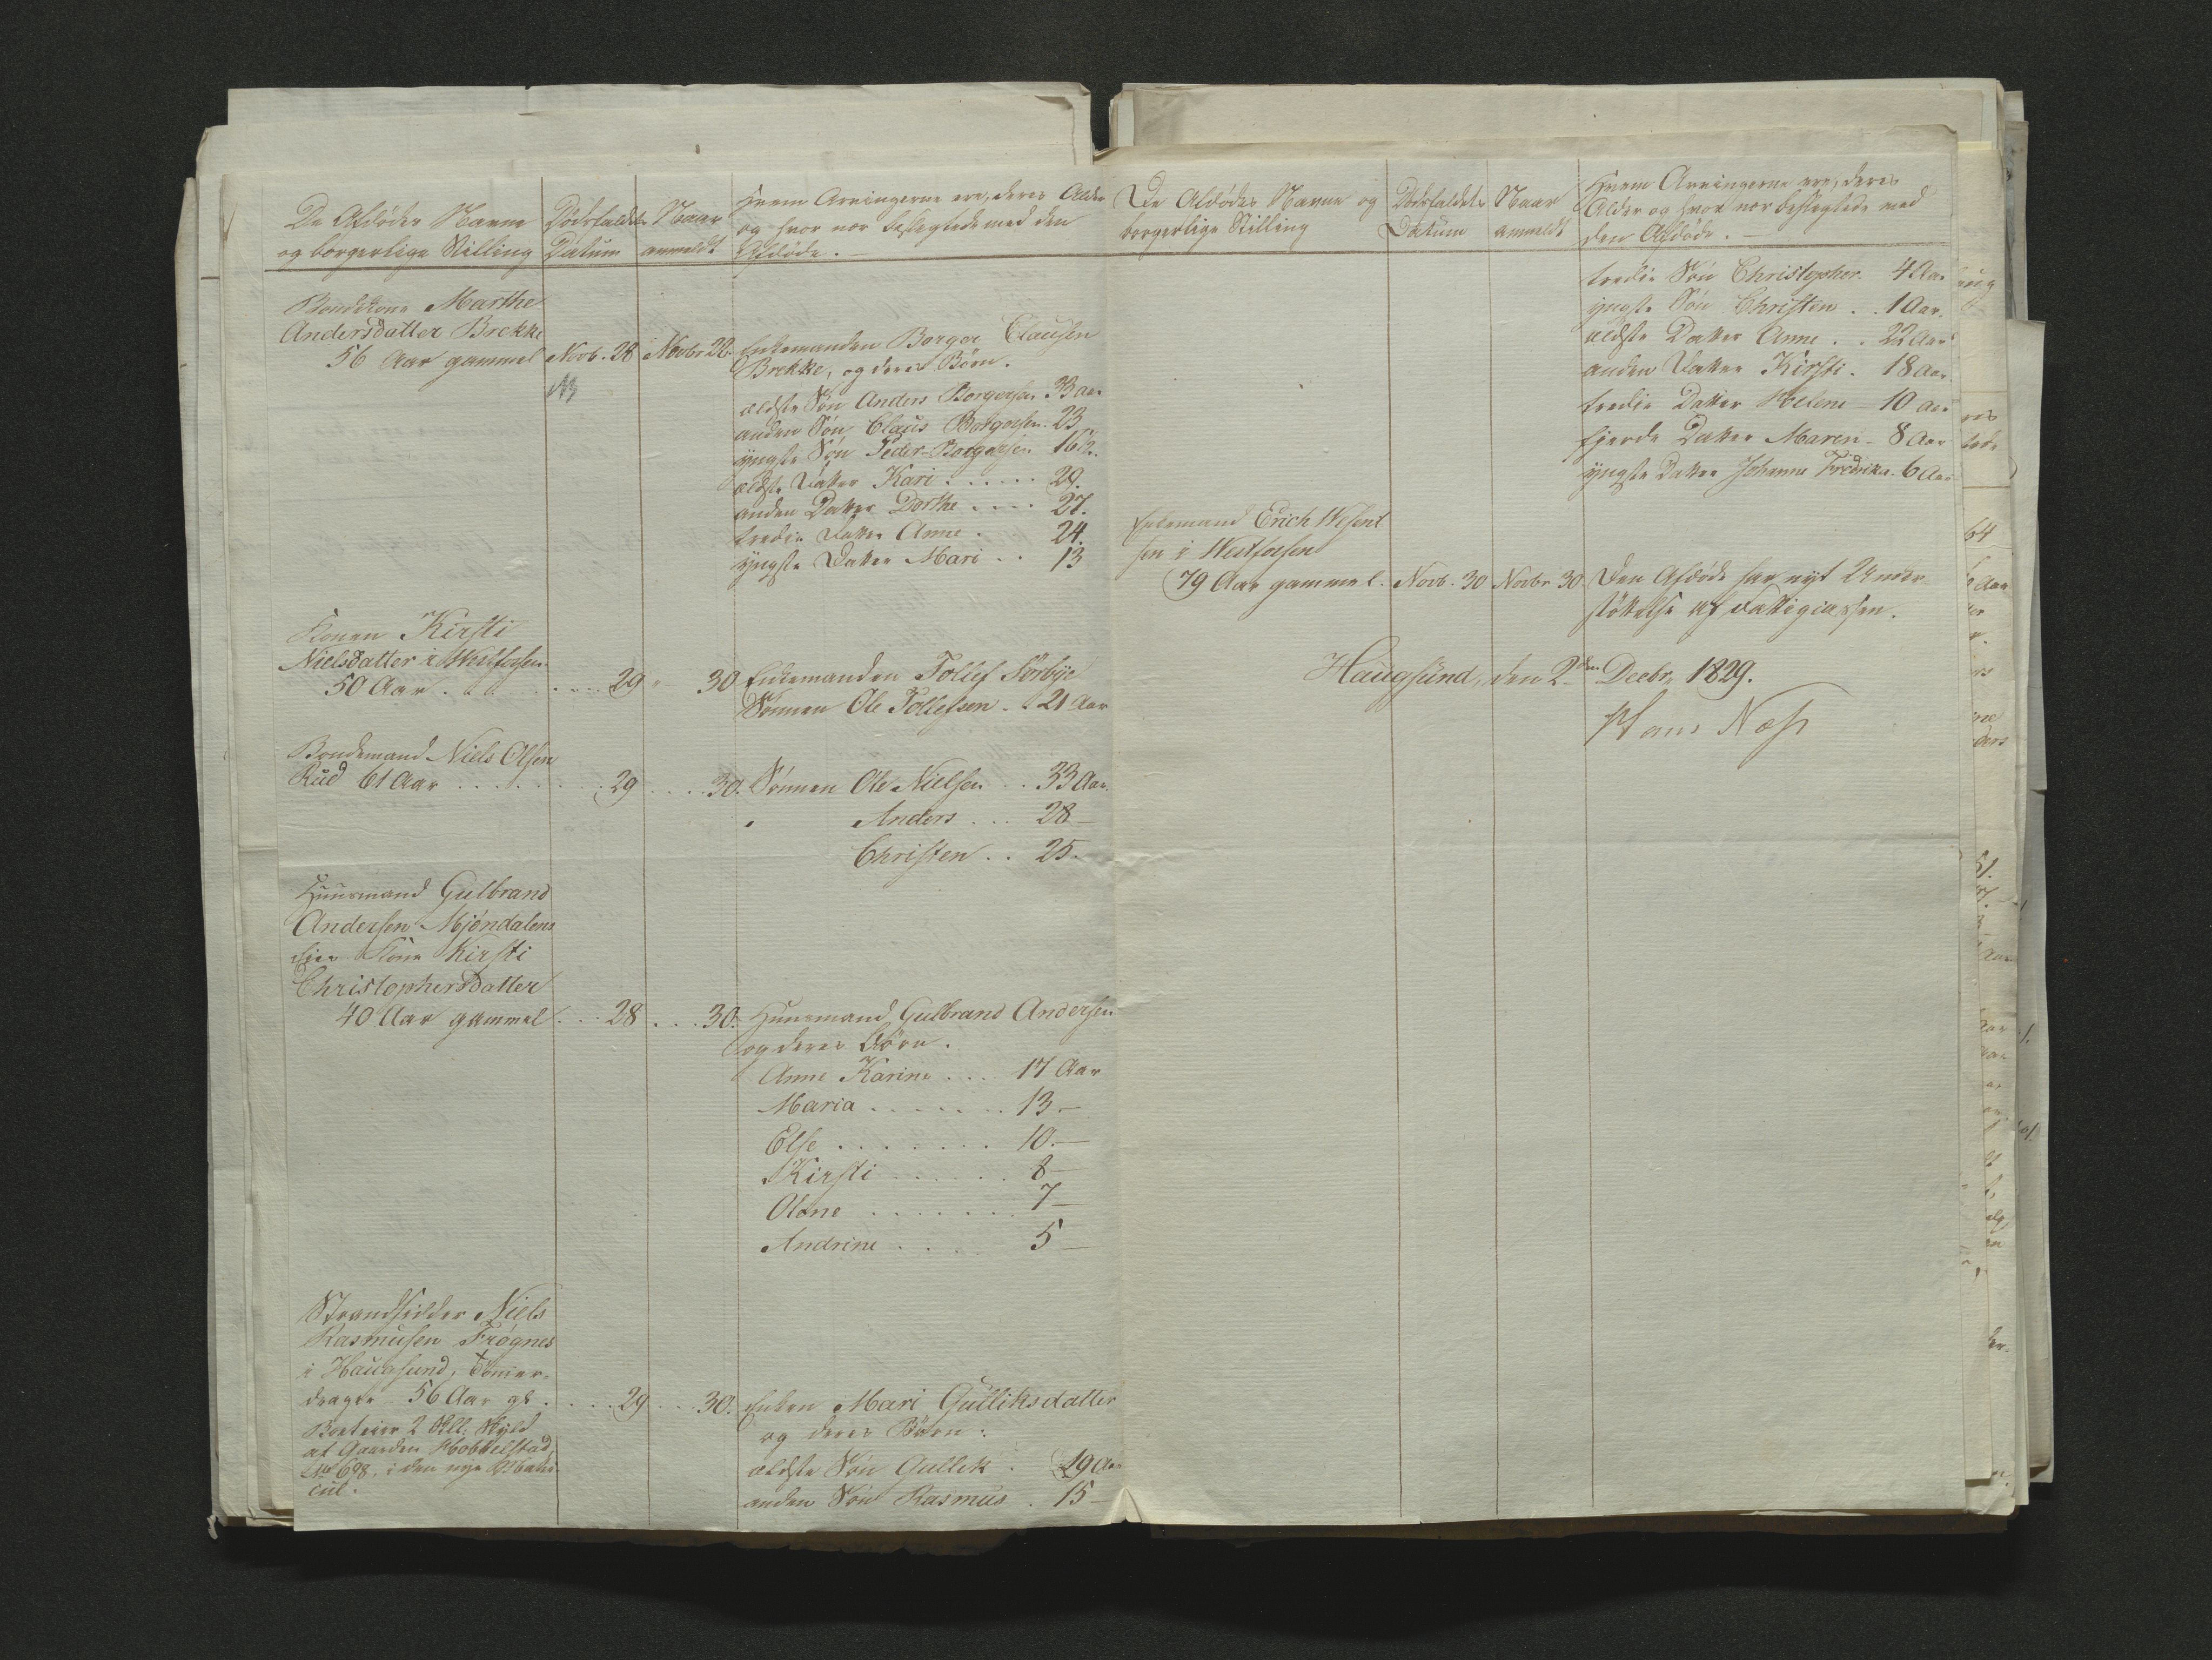 De Afdødes Navne
og borgerlige Stilling
Dödsfaldets
Datum
Naar
anmeldt
Hvem Arvingerne ere, deres Alder
og hvor nær beslegtede med den
Afdøde.
Bondekone Marthe
Andersdatter Brekke
56 Aar gammel Novb. 28 Novbr 28. Enkemanden Borger Clausen
Brekke, og deres Børn.
ældste Søn Anders Borgersen 33 Aar
anden Søn Claus Borgersen 23.
yngste Søn Peder Borgersen 16½.
ældste Datter Kari . . . . . 29.
anden Datter Dorthe . . . . 27.
tredie Datter Anne . 24.
yngste Datter Mari . . 13
Konen Kirsti
Nielsdatter i Westfossen
50 Aar . . . . . . 29 " 30 Enkemanden Tollef Sørbye
Sønnen Ole Tollefsen . . 21 Aar
Bondemand Niels Olsen
Rud 61 Aar . . . . . . . 29 . . . . 30. Sønnen Ole Nielsen . . 33 Aar.
" Anders . . . 28 –
Christen . . 25.
Huusmand Gulbrand
Andersen Mjøndalens
Eier Kone Kirsti
Christophersdatter
40 Aar gammel . . . 28 . . . 30. Huusmand Gulbrand Andersen
og deres Børn.
Anne Karine . . . 17 Aar
Maria . . . . . . . 13 –
Else . . . . . . . . 10. –
Kirsti . . . . . . 8 –
Olone . . . . . . . 7 –
Andrine . . . . 5 –
Strandsidder Niels
Rasmusen Frøgnes
i Haugsund, Tømer-
drager 56 Aar gl. . . . . 29 . . . 30. Enken Mari Gulliksdatter
og deres Børn:
2 Skll. Skyld
af Gaarden Hobbelstad,
No 698, i den nye Matri-
cul.
ældste Søn Gullik . 19 Aar
anden Søn Rasmus . 15 –
De Afdødes Navne og
borgerlige Stilling
Dødsfaldets
Datum
Naar
anmeldt
Hvem Arvingerne ere, deres
Alder og hvor nær beslegtede med
den Afdøde. –
tredie Søn Christopher 4 Aar
yngste Søn Christen . . 1 Aar.
ældste Datter Anne . . 22 Aar
anden Datter Kirsti . 18 Aar.
tredie Datter Helene – 10 Aar
fjerde Datter Maren – 8 Aar
yngste Datter Johanne Fredrike . 6 Aar
Enkemand Erich Wesent
sen i Westfossen
79 Aar gammel. Novb. 30 Novbr 30 Den Afdøde har nydt Under-
støttelse af Fattigcassen.
Haugsund, den 2den Decbr. 1829.
Hans Næss